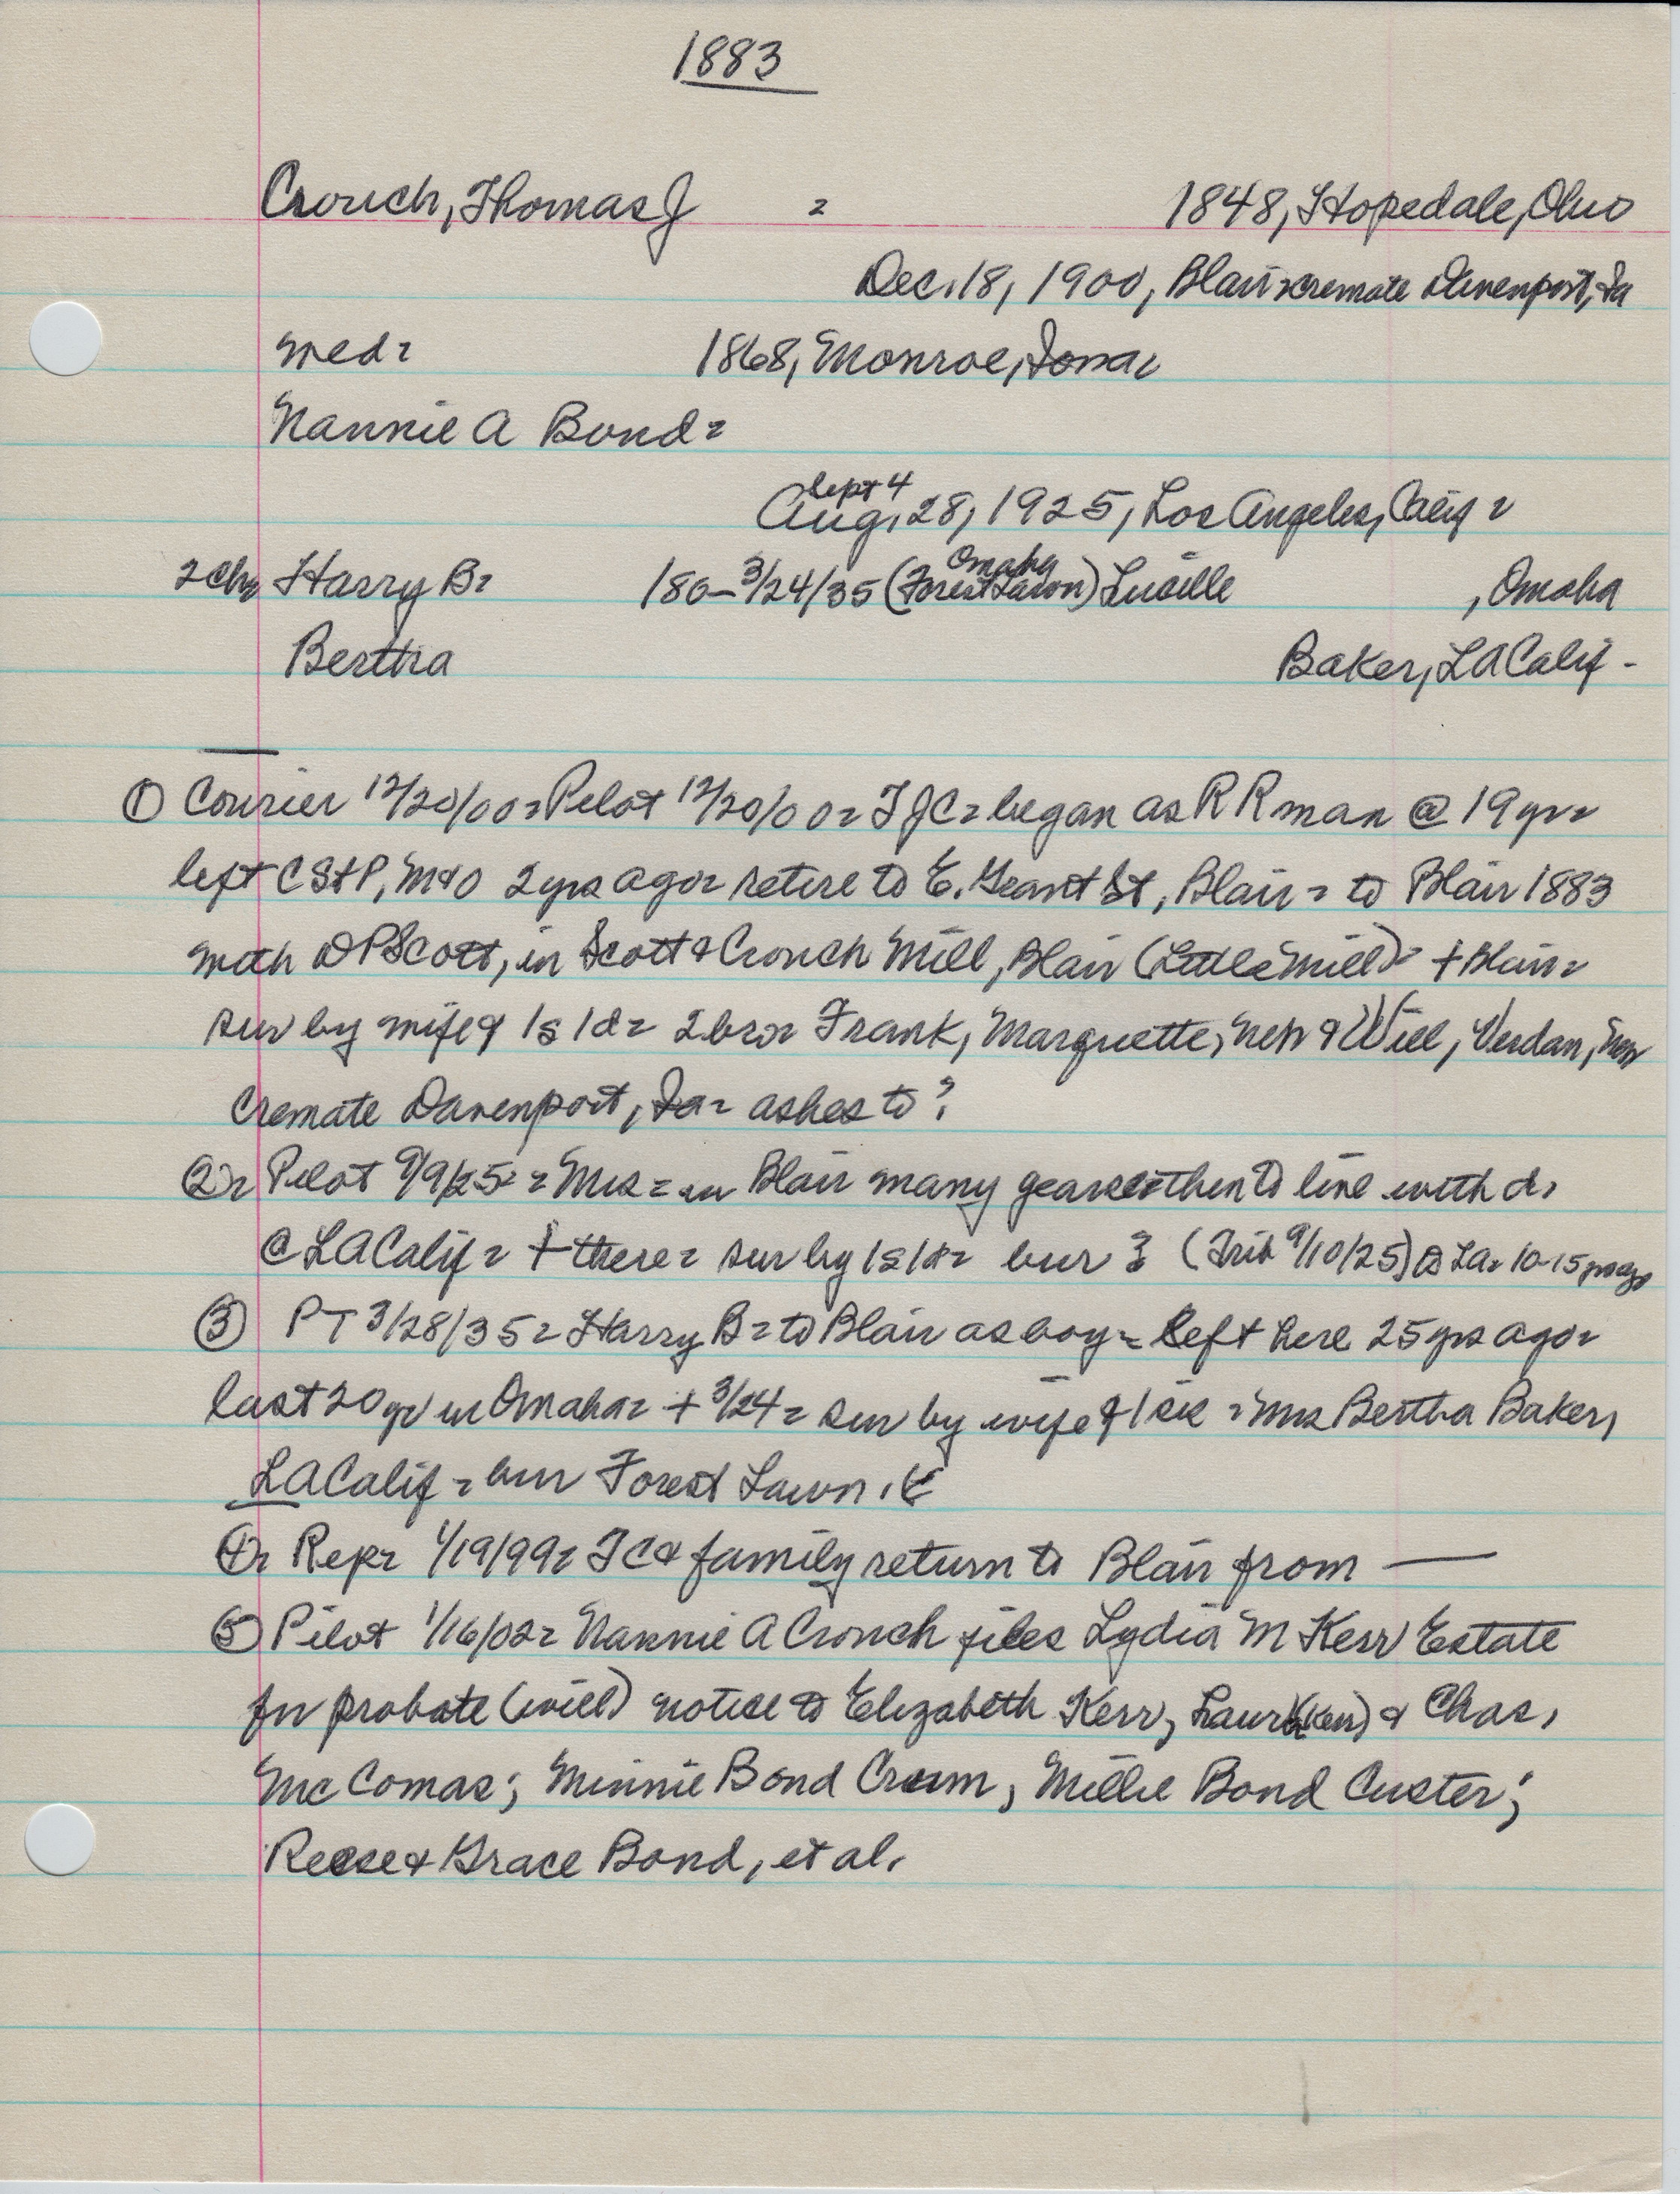 1883
Crouch, Thomas J = 1848, Hopedale, Ohio
Dec. 18, 1900, Blair = cremate Davenport, Ia
wed = 1868, Monroe, Iowa =
Nannie A Bond =
Sept 4
Aug. 28, 1925, Los Angeles, Calif =
Omaha
2 ch = Harry B = 186 - 3/24/35 (Forest Lawn) Lucille , Omaha
Bertha Baker, LA Calif -
① Courier 12/20/00 = Pilot 12/20/00 = TJC = began as RR man @ 19 yr =
left CStP, M&O 2 yrs ago = retire to E. Grant St, Blair = to Blair 1883
with DP Scott, in Scott & Crouch Mill, Blair (Little Mill) = + Blair =
sur by wife & 1s 1d = 2 bro = Frank, Marquette, Neb & Will, Verdan, Neb
cremate Davenport, Ia = ashes to ?
② = Pilot 9/9/25 = Mrs = in Blair many years then to live with d.
@ LA Calif = + there = sur by 1s 1d = bur ? (Trib 9/10/25) to LA = 10-15 yrs ago
③ PT 3/28/35 = Harry B = to Blair as boy = left here 25 yrs ago =
last 20 yr in Omaha = + 3/24 = sur by wife & 1 sis = Mrs Bertha Baker,
LA Calif = bur Forest Lawn.
④ = Rep = 1/19/99 = TC & family return to Blair from —
⑤ Pilot 1/16/02 = Nannie A Crouch files Lydia M Kerr Estate
for probate (will) notice to Elizabeth Kerr, Laura (Kerr) & Chas.
McComas; Minnie Bond Crum, Millie Bond Custer;
Reese & Grace Bond, et al.